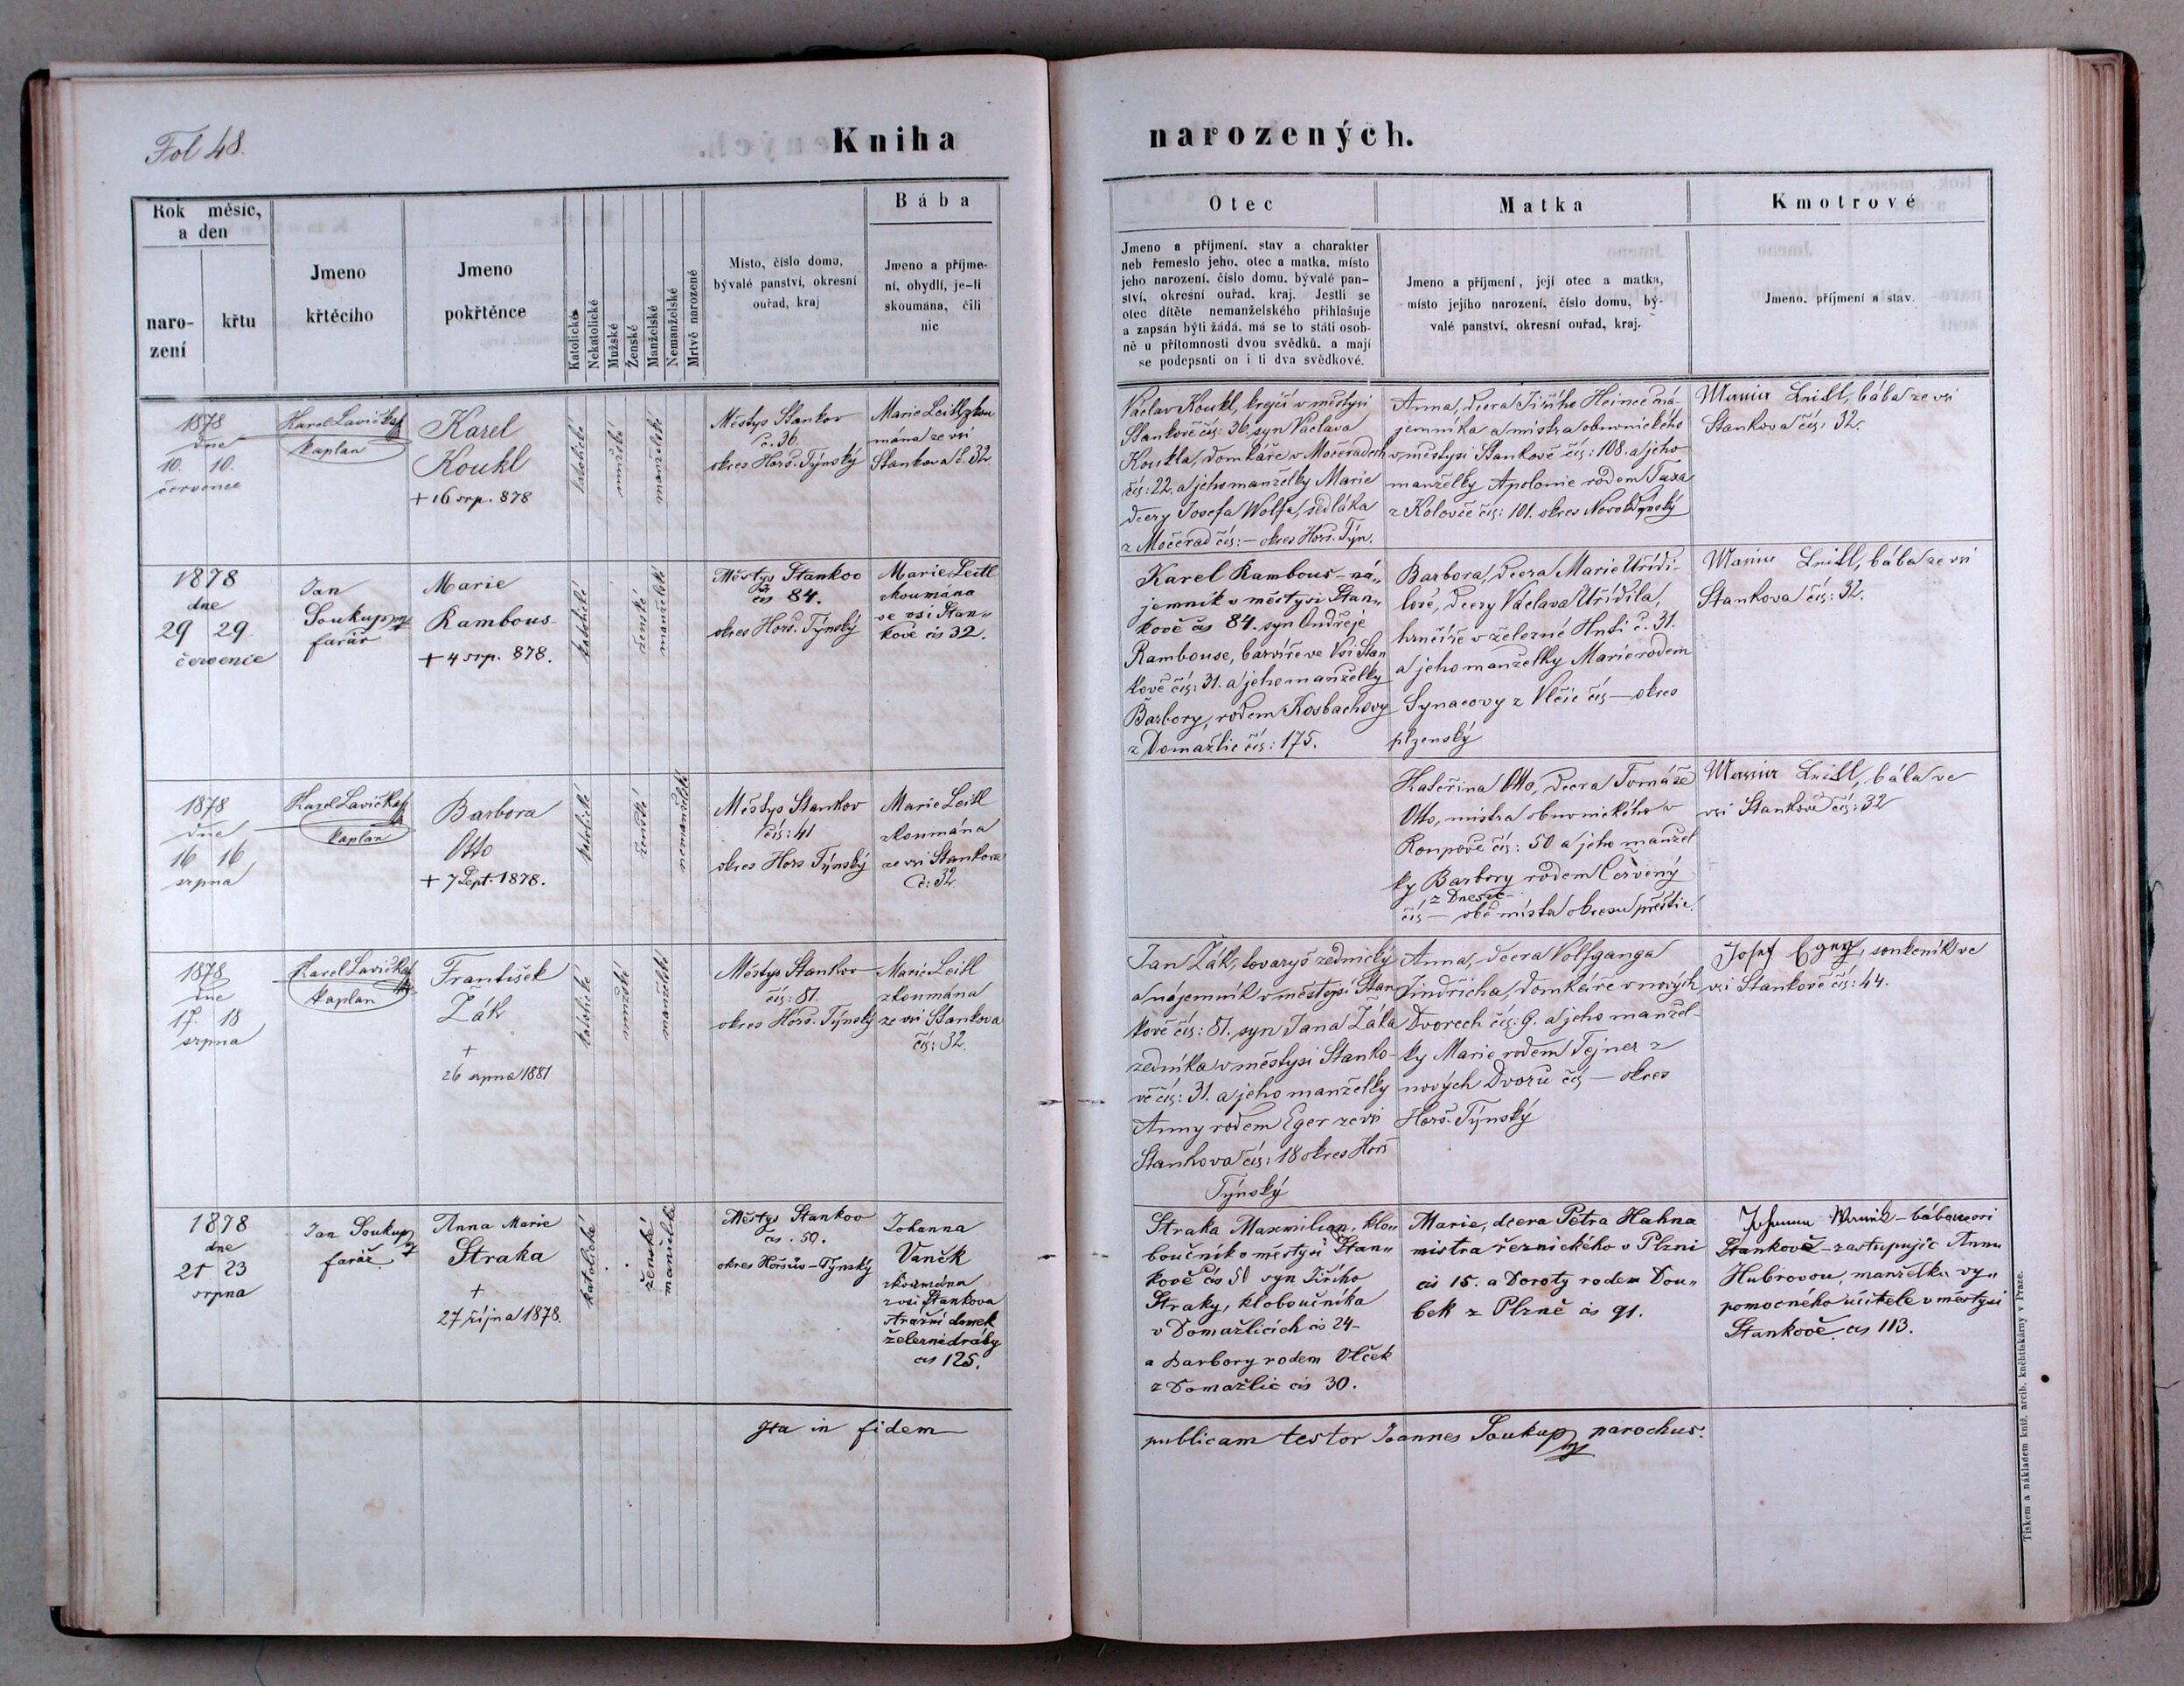 Fol 48.
Kniha
narozených.
Rok měsíc,
a den
naro-
zení
křtu
Jmeno
křtěcího
Jmeno
pokřtěnce
Katolické
Nekatolické
Mužské
Ženské
Manželské
Nemanželské
Mrtvě narozené
Místo, číslo domu,
bývalé panství, okresní
ouřad, kraj
Bába
Jmeno a příjme-
ní, obydlí, je-li
skoumána, čili
nic
Otec
Jmeno a příjmení, stav a charakter
neb řemeslo jeho, otec a matka, místo
jeho narození, číslo domu, bývalé pan-
ství, okresní ouřad, kraj. Jestli se
otec dítěte nemanželského přihlašuje
a zapsán býti žádá, má se to státi osob-
ně u přítomnosti dvou svědků, a mají
se podepsati on i ti dva svědkové.
Matka
Jmeno a příjmení, její otec a matka,
místo jejího narození, číslo domu, bý-
valé panství, okresní ouřad, kraj.
Kmotrové
Jmeno, příjmení a stav.
1878
dne
10. 10.
července
Karel Lavička
kaplan
Karel
Koukl
+ 16 srp. 878
katolické
mužské
manželské
Městys Stankov
č. 36.
okres Horš. Týnský
Marie Leitl zkou
mána ze vsi
Stankova č. 32.
Václav Koukl, krejčí v městysi
Stankově čís: 36. syn Václava
Koukla, domkáře v Močeradech
čís: 22. a jeho manželky Marie
dcery Josefa Wolfa, sedláka
z Močerad čís: — okres Horš. Týn.
Anna, dcera Jiřího Heince ná-
jemníka a mistra obuvnického
v městysi Stankově čís: 108. a jeho
manželky Apolonie rodem Taxa
z Koloveč čís: 101. okres Novokdýnský
Maria Leitl, bába ze vsi
Stankova čís: 32.
1878
dne
29 29
července
Jan
Soukup
farář
Marie
Rambous
+ 4 srp. 878.
katolické
ženské
manželské
Městys Stankov
čís 84.
okres Horš. Týnský
Marie Leitl
zkoumána
ve vsi Stan„
kově čís 32.
Karel Rambous - ná„
jemník v městysi Stan„
kově čís 84. syn Ondřeje
Rambouse, barvíře ve Vsi Stan
kově čís: 31. a jeho manželky
Barbory, rodem Kosbachovy
z Domažlic čís: 175.
Barbora, dcera Marie Uřídi-
lové, dcery Václava Uřídila,
hrnčíře v železné Huti č. 31.
a jeho manželky Marie rodem
Synacovy z Vlčic čís — okres
plzenský
Maria Leitl, bába ze vsi
Stankova čís: 32.
1878
dne
16 16
srpna
Karel Lavička
kaplan
Barbora
Otto
+ 7 Sept. 1878.
katolické
ženské
nemanželské
Městys Stankov
čís: 41
okres Horš Týnský
Marie Leitl
zkoumána
ze vsi Stankova
č: 32.
Kateřina Otto, dcera Tomáše
Otto, mistra obuvnického v
Roupově čís: 50 a jeho manžel
ky Barbory rodem Červený
z Dnešic
čís — obě místa okresu přeštic.
Maria Leitl, bába ve
vsi Stankově čís: 32
1878
dne
17. 18
srpna
Karel Lavička
kaplan
František
Žák
+
26 srpna 1881
katolické
mužské
manželské
Městys Stankov
čís: 81.
okres Horš. Týnský
Marie Leitl
zkoumána
ze vsi Stankova
čís: 32.
Jan Žák, tovaryš zednický
a nájemník v městysi Stan
kově čís: 81. syn Jana Žáka
zedníka v městysi Stanko-
vě čís: 31. a jeho manželky
Anny rodem Eger ze vsi
Stankova čís: 18 okres Horš
Týnský
Anna, dcera Volfganga
Jindřicha, domkáře v nových
Dvorech čís: 9. a jeho manžel-
ky Marie rodem Tejner z
nových Dvorů čís — okres
Horš. Týnský
Josef Eger, soukeník ve
vsi Stankově čís: 44.
1878
dne
21 23
srpna
Jan Soukup
farář
Anna Marie
Straka
+
27 října 1878.
katolické
ženské
manželské
Městys Stankov
čís. 50.
okres Horšův-Týnský
Johanna
Vaněk
zkoumána
z vsi Stankova
strážní domek
železní dráhy
čís 125.
Straka Maxmilian, klou
boučník v městysi Stan„
kově čís 50 syn Jiřího
Straky, kloboučníka
v Domažlicích čís 24-
a Barbory rodem Vlček
z Domažlic čís 30.
Marie, dcera Petra Hahna
mistra řeznického v Plzni
čís 15. a Doroty rodem Dou„
bek z Plzně čís 91.
Johanna Waněk - bába ve vsi
Stankově - zastupujíc Annu
Hubrovou, manželku vy„
pomocného učitele v městysi
Stankově čís 113.
Ita in fidem
publicam testor Joannes Soukup parochus.
Tiskem a nákladem kníž. arcib. kněhtiskárny v Praze.